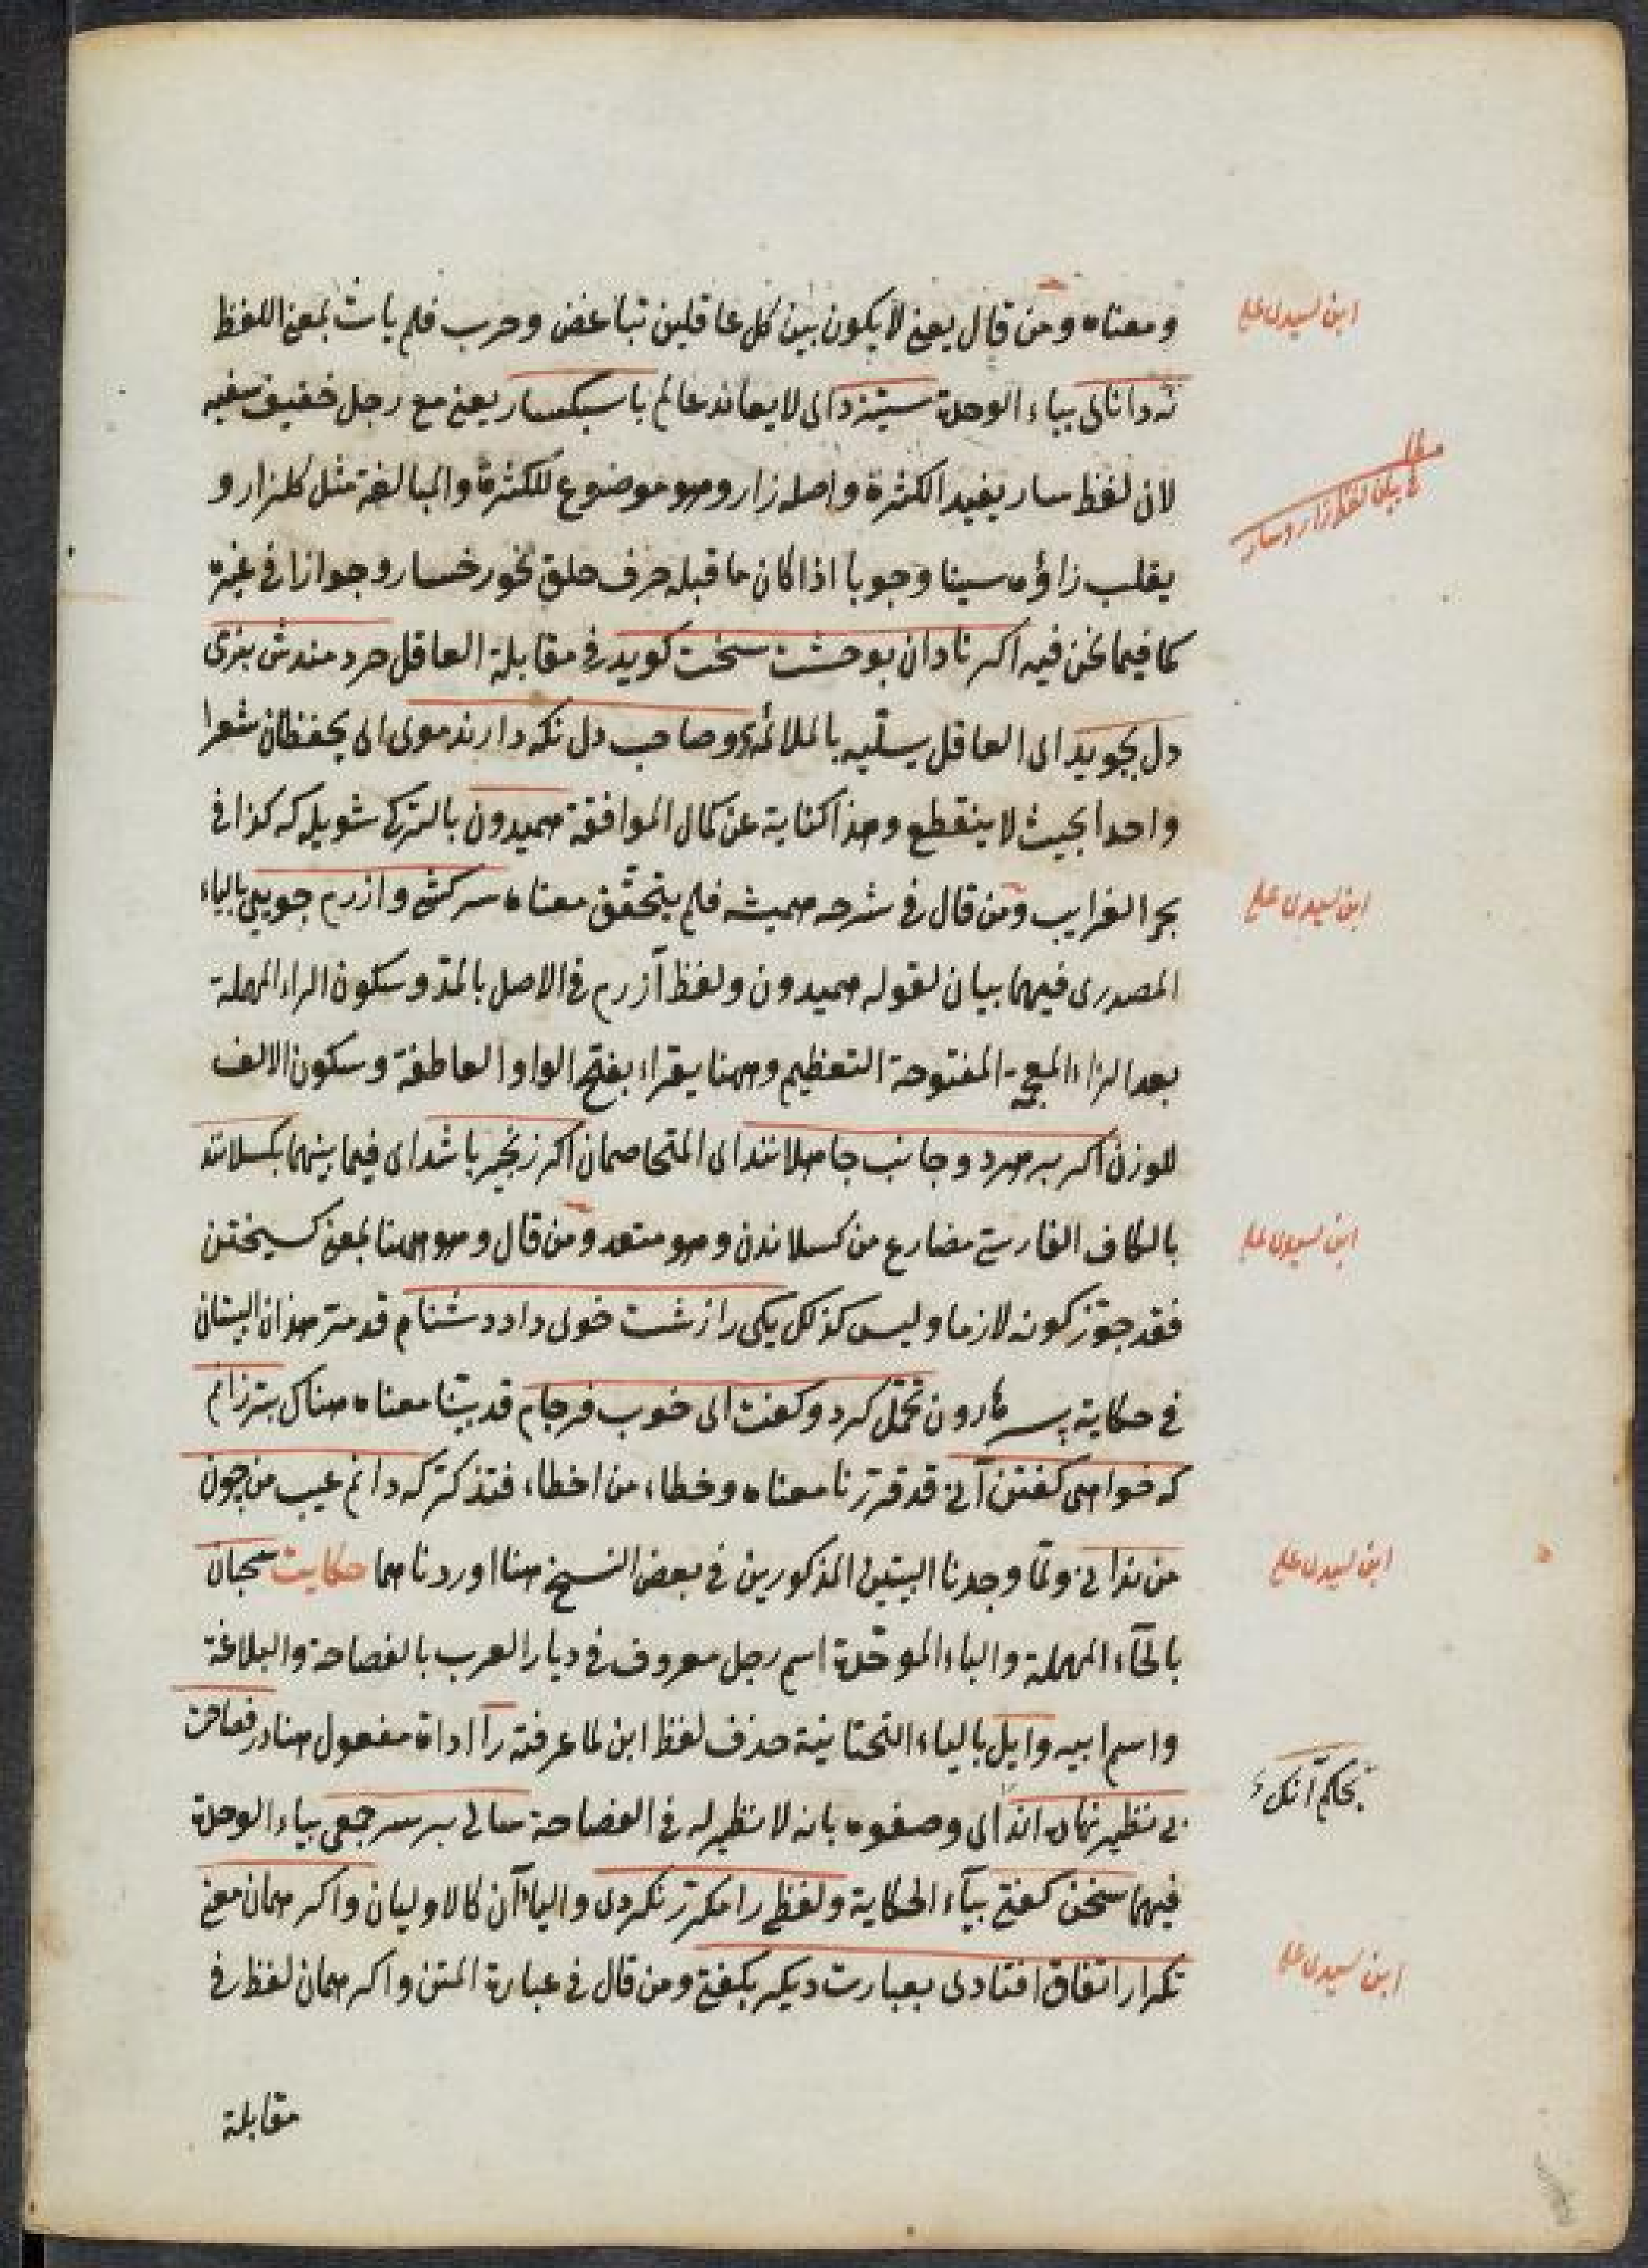 ومعناه ومن قال يعنى لا يكون بين كل عاقلين تباغض وحرب فلم يأت بمعنى اللفظ
ابن سيدى على
نه دانائى بياء الوحدة ستيزد اى لا يعاند عالم با سبكسار يعنى مع رجل خفيف سفيه
لان لفظ سار يفيد الكثرة واصله زار وهو موضوع للكثرة والمبالغة مثل كلزار و
مطلب
فى بيان لفظ زار وسار
يقلب زاؤه سينا وجوبا اذا كان ما قبله حرف حلق نحو رخسار وجوازا فى غيره
كما فيما نحن فيه اكر نادان بوحشت سخت كويد فى مقابلة العاقل خردمندش بنرمى
دل بجويد اى العاقل يسلّيه بالملائمة دو صاحب دل نكه دارند مويى اى يحفظان شعرا
واحدا بحيث لا ينقطع وهذا كناية عن كمال الموافقة هميدون بالتركى شويله كه كذا فى
بحر الغرايب ومن قال فى شرحه هميشه فلم يتحقق معناه سركشى وازرم جويى بالياء
ابن سيدى على
المصدرى فيهما بيان لقوله هميدون ولفظ آزرم فى الاصل بالمدّ وسكون الراء المهملة
بعد الزاء المعجمة المفتوحة التعظيم وههنا يقراء بفتح الواو العاطفة وسكون الالف
للوزن اكر بر هردو جانب جاهلانند اى المتخاصمان اكر زنجير باشد اى فيما بينهما بكسلانند
بالكاف الفارسى مضارع من كسلاندن وهو متعد ومن قال وهو ههنا بمعنى كسيختن
ابن سيدى على
فقد جوّز كونه لازما وليس كذلك يكى را زشت خوى داد دشنام قد مرّ هذان البيتان
فى حكاية پسر هارون تحمّل كرد وكفت اى خوب فرجام قد بيّنا معناه هناك بتر زانم
كه خواهى كفتن آنى قد قررنا معناه وخطاء من اخطاء فتذكّر كه دانم عيب من چون
من ندانى ولمّا وجدنا البيتين المذكورين فى بعض النسخ هنا اوردناهما حكايت سحبان
ابن سيدى على
بالحاء المهملة والباء الموحّدة اسم رجل معروف فى ديار العرب بالفصاحة والبلاغة
واسم ابيه وايل بالياء التحتانية حذف لفظ ابن لما عرفته را اداة مفعول هنا در فصاحت
بى نظير نهاده اند اى وصفوه بانه لا نظير له فى الفصاحة سالى بر سر جمعى بياء الوحدة
بحكم آنكه
فيهما سخن كفتى بياء الحكاية ولفظى را مكرّر نكردى والياءآن كالاوليان واكر همان معنى
تكرار اتفاق افتادى بعبارت ديكر بكفتى ومن قال فى عبارة المتن واكر همان لفظ فى
ابن سيدى على
مقابلة